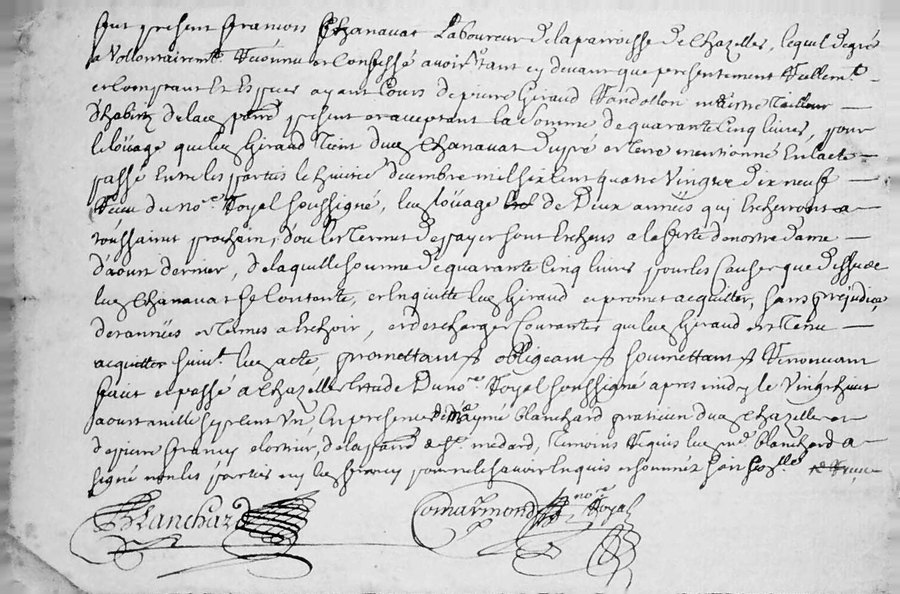 fut present françois Chanavat Laboureur de la parroisse de Chazelles, lequel de gré
a Vollontairemt Reconnu et Confessé avoir tant cy devant que presentement Reellemt
et Comptant En Especes ayant Cours de pierre Giraud maitre Tailleur
d'habitz de lad. parse present et acceptant la Somme de quarante Cinq livres, pour
le loüage que led. Giraud Tient dud. Chanavat du pré et Terre mentionné En lacte
passé Entre les parties le huitie decembre mil six Cent quatre Vingtz dix neuf
Receu du nore Royal soussigné, led. loüage de Deux années qui Escherront a
toussaint prochain, dou les Termes de payer sont Escheus a la feste de nostre dame
d'aoust dernier, de laquelle somme de quarante Cinq livres pour les Causes que dessus
led. Chanavat Se Contente, et En quitte led. Giraud et promet acquitter, Sans prejudice
des années et Termes a Eschoir, et des charges Courantes que led. Giraud est Tenu
acquitter suivt led. acte, promettant obligeant soumettant Renoncant
faict et passé a Chazelles Estude Du nore Royal soussigné apres midy le Vingt huit
aoust mil le sept Cent Un, En presence de me aymé blanchard praticien dud. Chazelles et
de pierre de la parse de St. medard, temoins Requis led. me. blanchard a
signé non les parties ny led. pour ne le scavoir Enquis et sommés
Blanchard Comarmond nore Royal